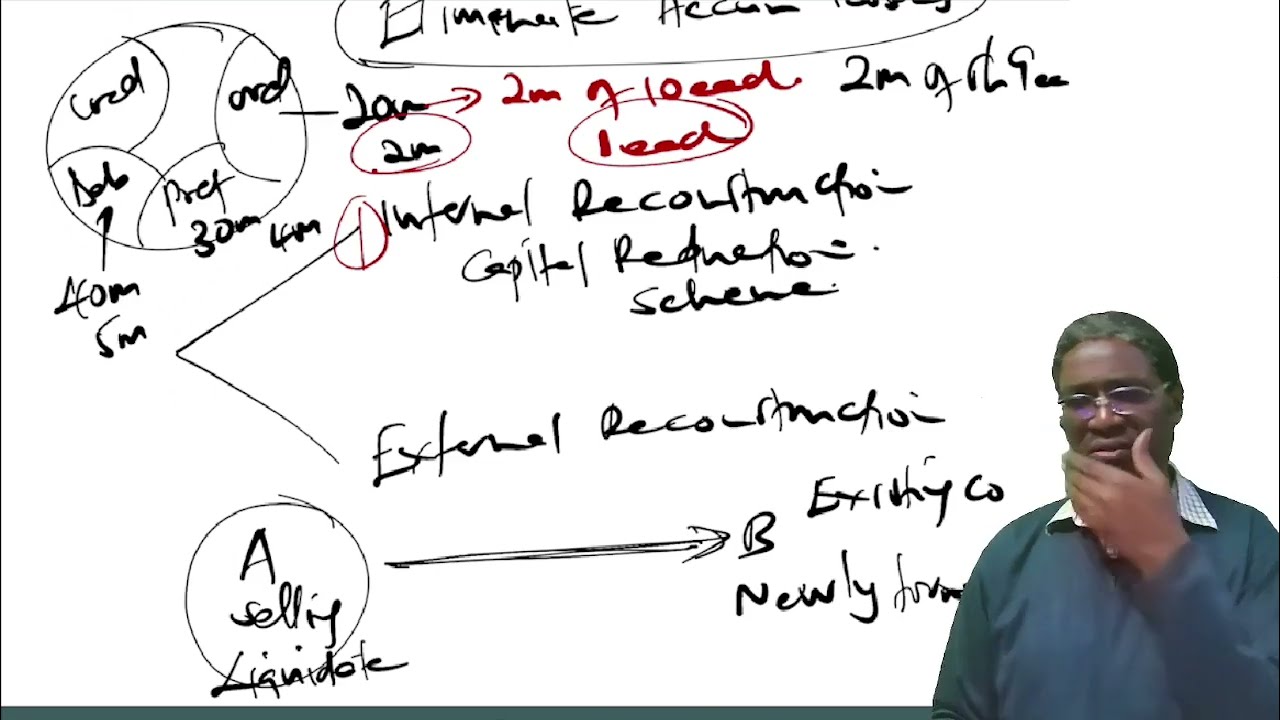 Eliminate Accum losses
Cred
ord
20m → 2m of 10 each.
2m of sh 9 each
2m
1 each
Deb
Pref
30m 4m
40m
5m
① Internal Reconstruction
Capital Reduction
Scheme.
External Reconstruction
A
selling
Liquidate
B Existing Co
Newly form